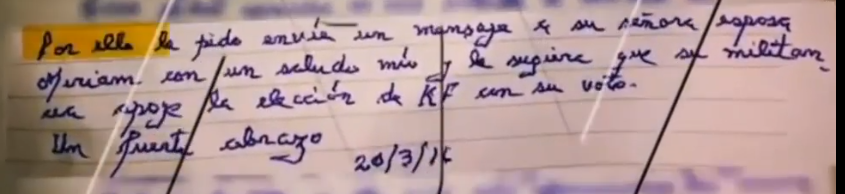 Por ello le pido envíe un mensaje a su señora esposa
Myriam con un saludo mío y le sugiera que su militan_
cia apoye la elección de KF con su voto.
Un fuerte abrazo
20/3/16